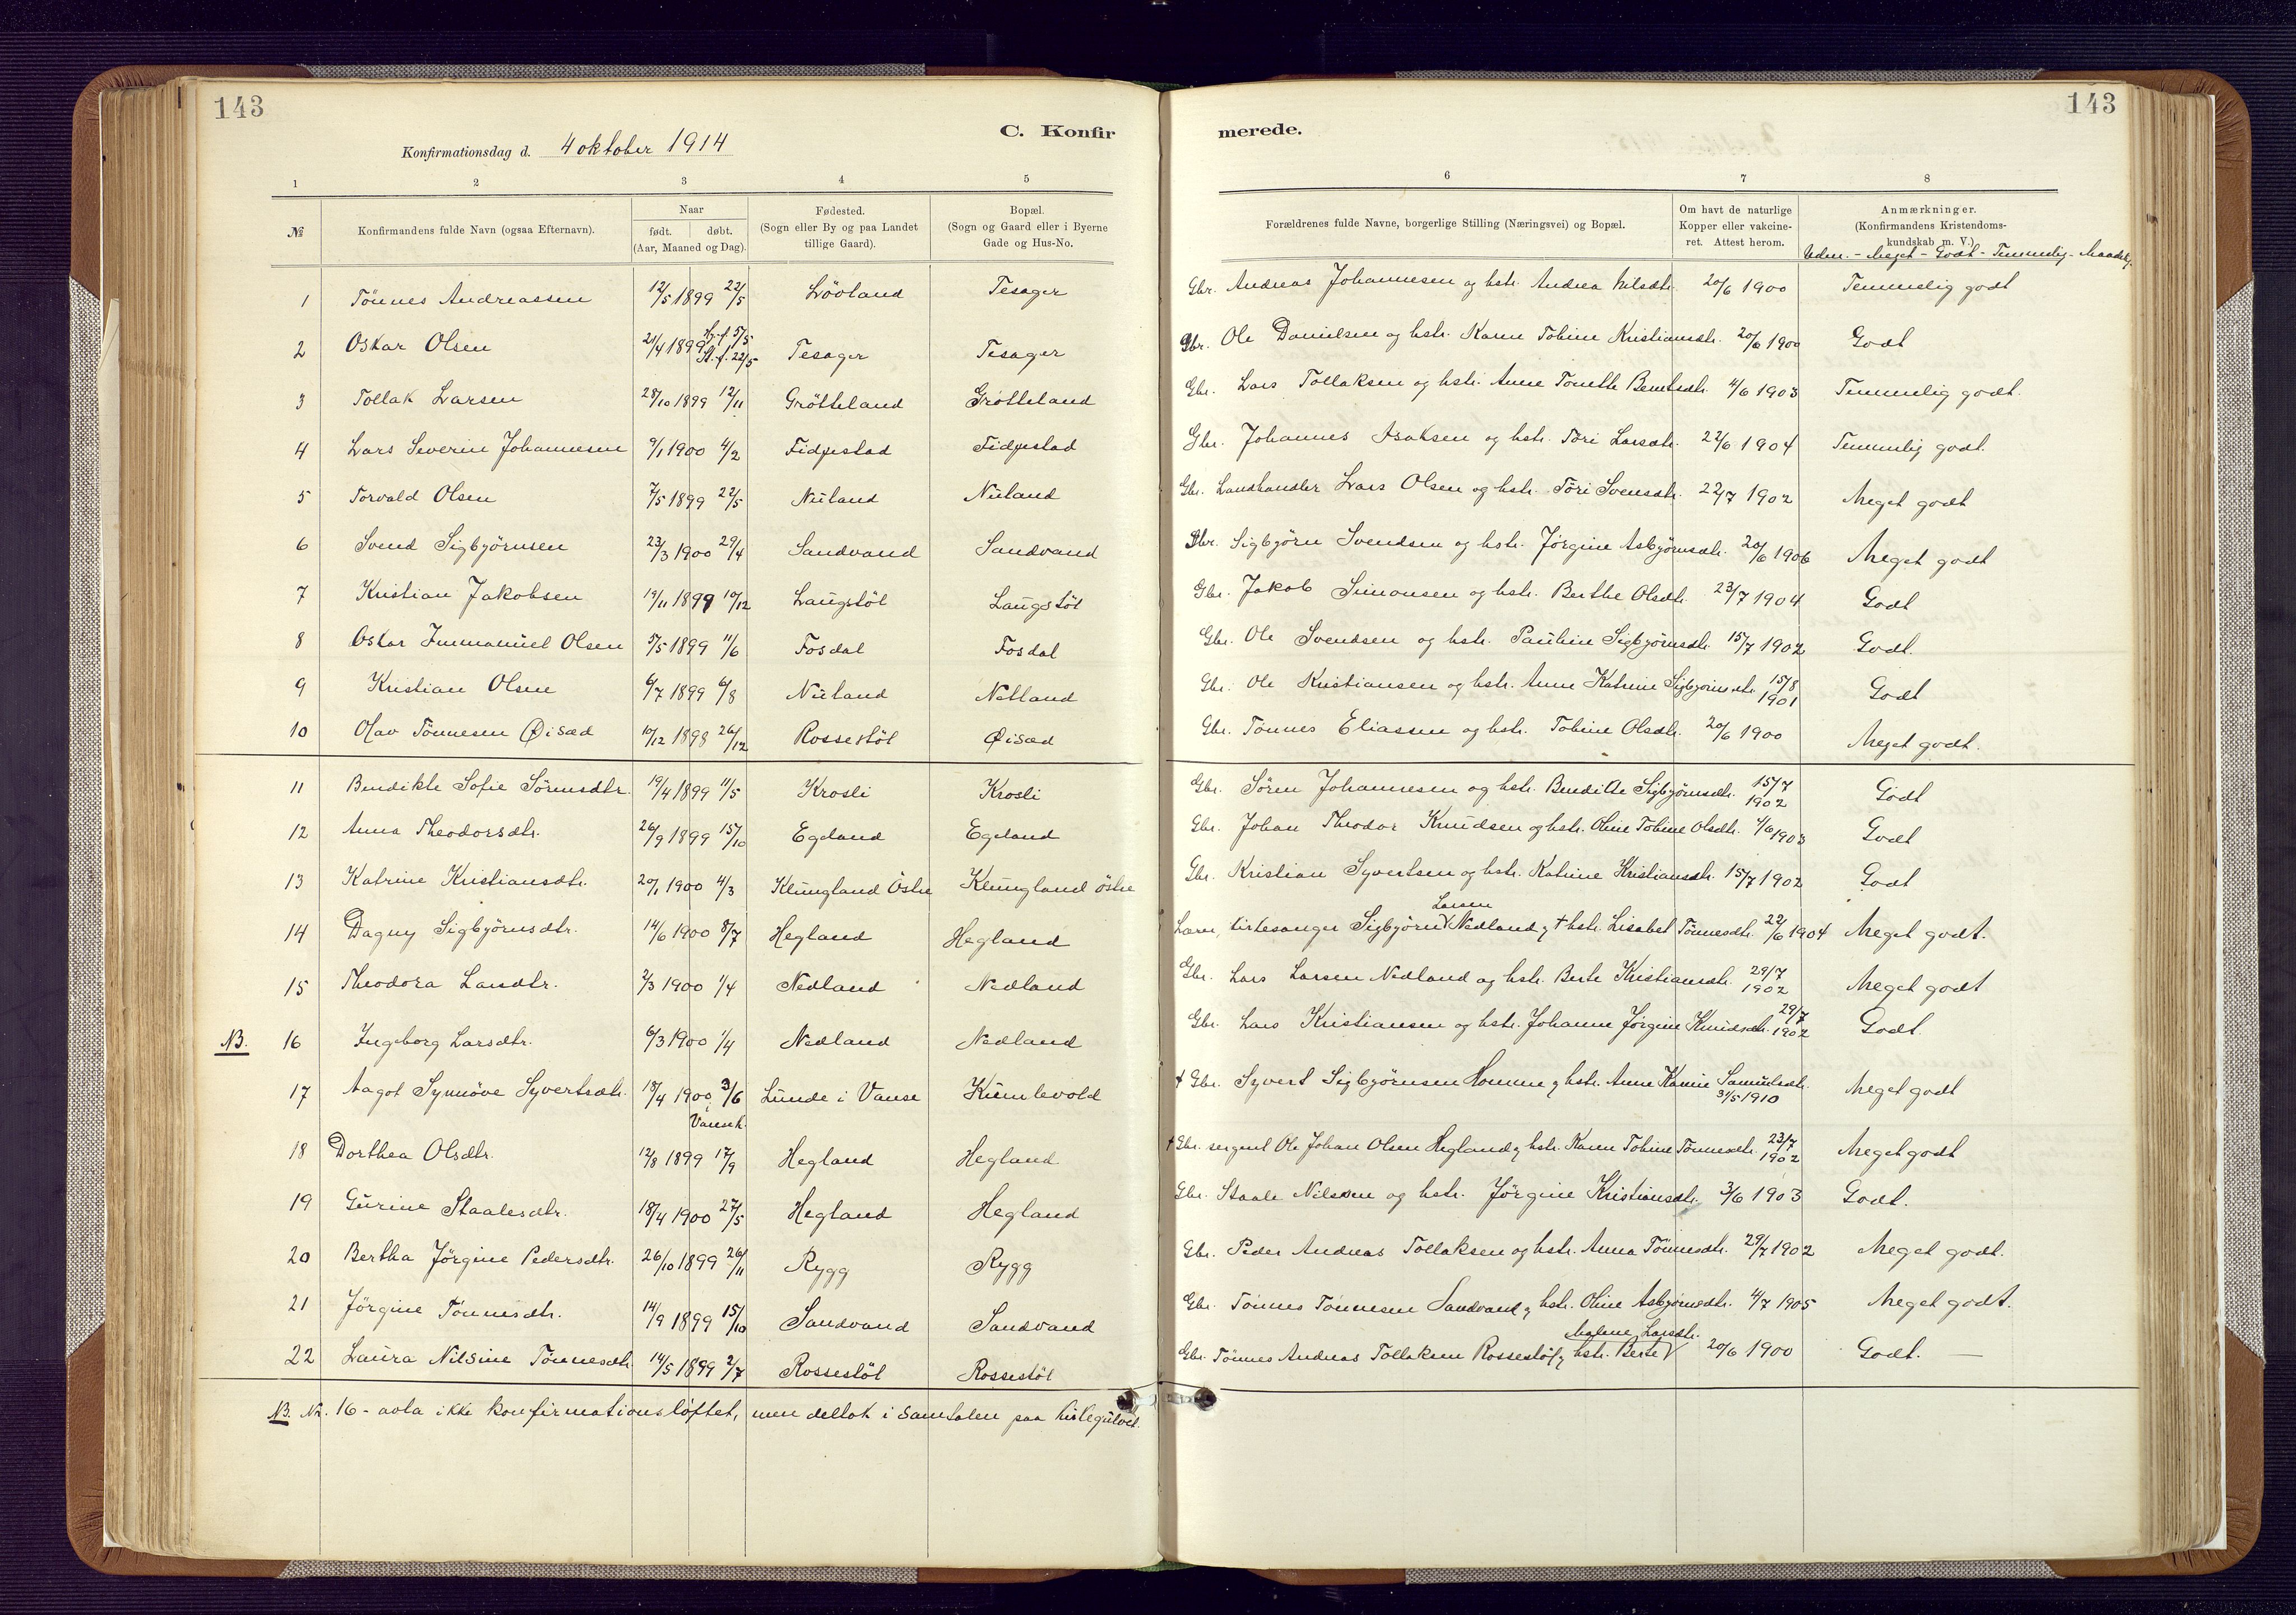 143
143
C. Konfir
merede.
Konfirmationsdag d. 4 oktober 1914
1 2 3 4 5 6 7 8
№ Konfirmandens fulde Navn (ogsaa Efternavn). Naar født. døbt. (Aar, Maaned og Dag). Fødested. (Sogn eller By og paa Landet tillige Gaard). Bopæl. (Sogn og Gaard eller i Byerne Gade og Hus-No. Forældrenes fulde Navne, borgerlige Stilling (Næringsvei) og Bopæl. Om havt de naturlige Kopper eller vakcineret. Attest herom. Anmærkninger. (Konfirmandens Kristendomskundskab m. V.)
Udm. - Meget - Godt - Temmelig - Maadelig.
1 Tönnes Andreassen 12/5 1899 22/5 Lövland Tesager Gbr. Andreas Johannesen og hstr. Andrea Nilsdtr. 20/6 1900 Temmelig godt
2 Oskar Olsen 21/4 1899 Hj.d. 5/5 St. f. 22/5 Tesager Tesager Gbr. Ole Danielsen og hstr. Karen Tobine Kristiansdtr. 20/6 1900 Godt
3 Tollak Larsen 28/10 1899 12/11 Grötteland Grötteland Gbr. Lars Tollaksen og hstr. Anne Tonette Berntsdtr. 4/6 1903 Temmelig godt.
4 Lars Severin Johannesen 9/1 1900 4/2 Fidjestad Fidjestad Gbr. Johannes Isaksen og hstr. Tori Larsdtr. 22/6 1904 Temmelig godt.
5 Torvald Olsen 7/5 1899 22/5 Nuland Nuland Gbr. Landhandler Lars Olsen og hstr. Tori Svensdtr. 22/7 1902 Meget godt
6 Svend Sigbjörnsen 23/3 1900 29/4 Sandvand Sandvand Gbr. Sigbjörn Svendsen og hstr. Jörgine Asbjörnsdtr. 20/6 1906 Meget godt
7 Kristian Jakobsen 19/11 1899 10/12 Laugstöl Laugstöl Gbr. Jakob Simonsen og hstr. Berthe Olsdtr. 23/7 1904 Godt
8 Oskar Immanuel Olsen 5/5 1899 11/6 Fosdal Fosdal Gbr. Ole Svendsen og hstr. Pauline Sigbjörnsdtr. 15/7 1902 Godt.
9 Kristian Olsen 6/7 1899 6/8 Nuland Netland Gbr. Ole Kristiansen og hstr. Anne Katrine Sigbjörnsdtr. 15/8 1901 Godt
10 Olav Tönnesen Øisæd 10/12 1898 26/12 Rossestöl Øisæd Gbr. Tönnes Eliassen og hstr. Tobine Olsdtr. 20/6 1900 Meget godt.
11 Bendikte Sofie Sörensdtr. 19/4 1899 11/5 Krosli Krosli Gbr. Sören Johannesen og hstr. Bendikte Sigbjörnsdtr. 15/7 1902 Godt
12 Anna Theodorsdtr. 26/9 1899 15/10 Egeland Egeland Gbr. Johan Theodor Knudsen og hstr. Oline Tobine Olsdtr. 4/6 1903 Godt
13 Katrine Kristiansdtr. 20/1 1900 4/3 Klungland Östre Klungland östre Gbr. Kristian Syvertsen og hstr. Katrine Kristiansdtr. 15/7 1902 Godt
14 Dagny Sigbjörnsdtr. 14/6 1900 8/7 Hegland Hegland Lærer, kirkesanger Sigbjörn Larsen Nedland og † hstr. Lisabet Tönnesdtr. 22/6 1904 Meget godt.
15 Theodora Larsdtr. 2/3 1900 1/4 Nedland Nedland Gbr. Lars Larsen Nedland og hstr. Berte Kristiansdtr. 29/7 1902 Meget godt
NB. 16 Ingeborg Larsdtr. 6/3 1900 1/4 Nedland Nedland Gbr. Lars Kristiansen og hstr. Johanne Jörgine Knudsdtr. 29/7 1902 Godt.
17 Aagot Synnöve Syvertsdtr. 18/4 1900 3/6 i Vansek. Lunde i Vanse Kumlevold † Gbr. Syvert Sigbjörnsen Homme og hstr. Anne Karine Samuelsdtr. 31/5 1910 Meget godt
18 Dorthea Olsdtr. 12/8 1899 17/9 Hegland Hegland † Gbr. sergent Ole Johan Olsen Hegland og hstr. Karen Tobine Tönnesdtr. 23/7 1902 Meget godt
19 Gurine Staalesdtr. 18/4 1900 27/5 Hegland Hegland Gbr. Staale Nilssen og hstr. Jörgine Kristiansdtr. 3/6 1903 Godt.
20 Bertha Jörgine Pedersdtr. 26/10 1899 26/11 Rygg Rygg Gbr. Peder Andreas Tollaksen og hstr. Anna Tönnesdtr. 29/7 1902 Meget godt.
21 Jörgine Tönnesdtr. 14/9 1899 15/10 Sandvand Sandvand Gbr. Tönnes Tönnesen Sandvand og hstr. Oline Asbjörnsdtr. 4/7 1905 Meget godt.
22 Laura Nilsine Tönnesdtr. 14/5 1899 2/7 Rossestöl Rossestöl Gbr. Tönnes Andreas Tollaksen Rossestöl og hstr. Berte Malene Larsdtr. 20/6 1900 Godt. —
NB. Nr. 16 - avla ikke konfirmationslöftet, men deltok i samtalen paa kirkegulvet.